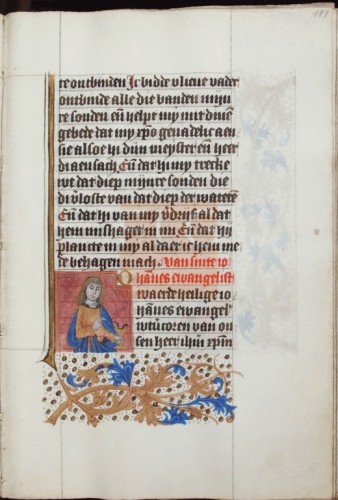 te ontbinden Ic bidde v lieue vader
ontbinde alle die banden mijn
re sonden en̄ helpt my mit dinē
gebede dat my xp̄o genadelic aen
sie alsoe hi dijn meyster en̄ heer
di aensach En̄ dat hi my trecke
wt dat diep mijnre sonden die
di v loste van dat diep der watere
En̄ dat hi van my v drijf al dat
hem mishaget in mi En̄ dat hi
plante in my al dat ic hem me
te behagen mach Van sinte io
hānes ewangelist
O waerde heilige io
hānes ewangel
vercoren van on
sen heer ihūs xpm̄